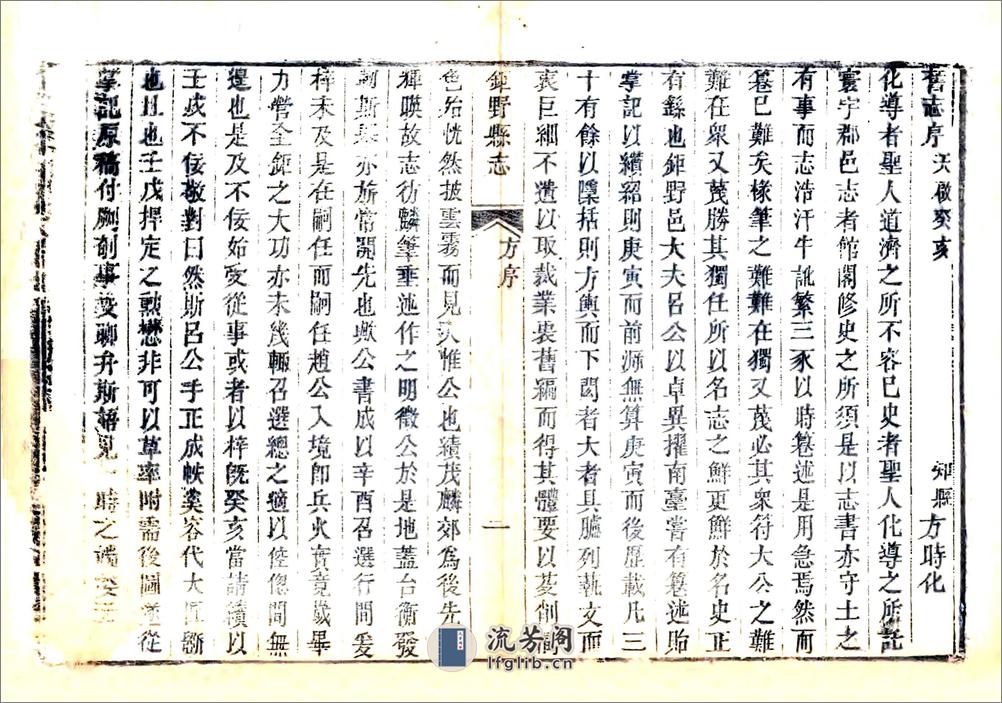 舊志序 天啟癸亥 知縣 方時化
化導者聖人道濟之所不容已史者聖人化導之所託
寰宇郡邑志者館閣修史之所須是以志書亦守土之
有事而志浩汗牛訛繁三豕以時纂述是用急焉然而
纂已難矣椽筆之難難在獨又莫必其衆符大公之難
難在衆又莫勝其獨任所以名志之鮮更鮮於名史正
有繇也鉅野邑大夫呂公以卓異擢南臺嘗有纂述貽
掌記以纘紹則庚寅而前源無算庚寅而後歷載凡三
十有餘以檃括則方輿而下闕者大者具臚列藝文而
衷巨細不遺以取裁業裒舊稿而得其體要以蔆創
鉅野縣志 方序 二
色殆恍然披雲霧而見天惟公也績茂麟郊為後先
輝暎故志彷麟筆垂述作之明徵公於是地蓋台衡發
軔斯纂亦旂常開先也歟公書成以辛酉召選行間爰
梓未及是在嗣任而嗣任趙公入境卽兵火實竟歲畢
力營全鉅之大功亦未幾輒召選總之適以倥傯間無
遑也是及不佞始受從事或者以梓旣癸亥當請續以
壬戌不佞敬對曰然斯呂公手正成帙奚容代大匠斵
也且也壬戌捍定之勳懋非可以草率附需後圖從
掌記原稿付剞劂事爰聊弁斯語見一時之
流芳阁
lfglib.cn